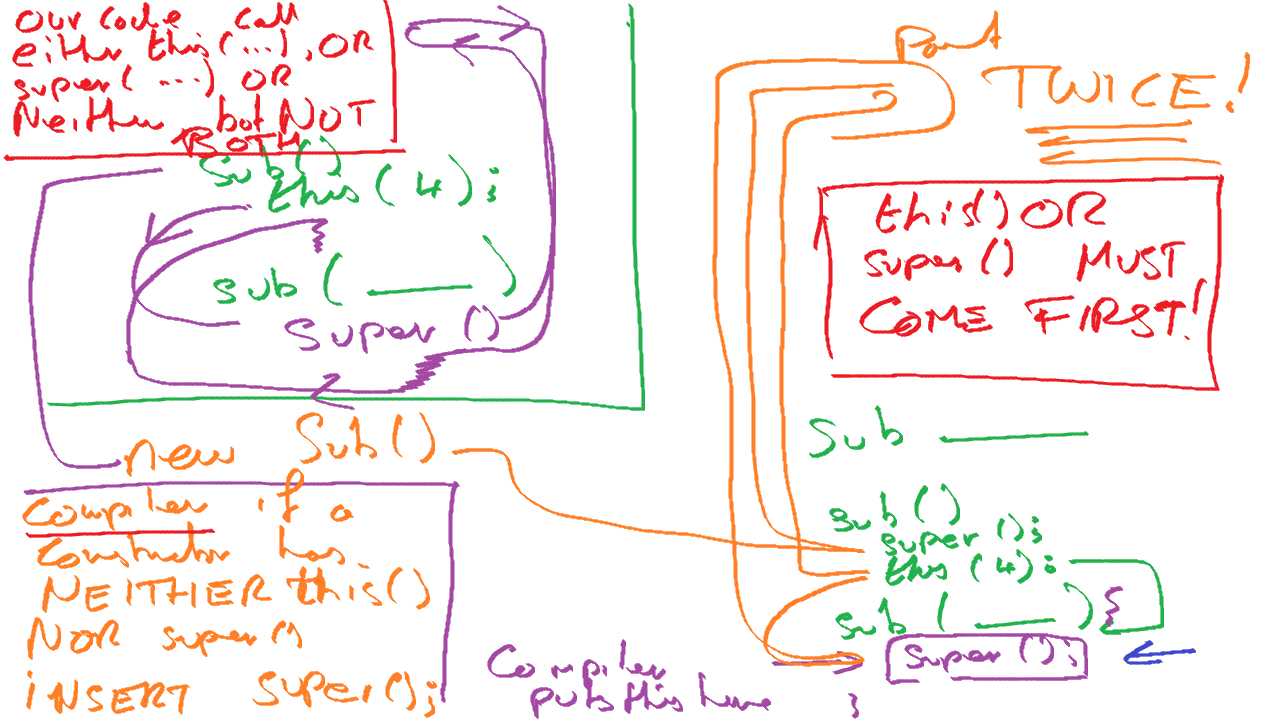 Our code call
either this(...), OR
super(...) OR
Neither but NOT
BOTH
Sub()
this(4);
sub(____)
super()
new Sub()
Compiler if a
Constructor has
NEITHER this()
NOR super()
INSERT super();
Compiler
puts this here
Part
TWICE!
this() OR
super() MUST
COME FIRST!
Sub ____
sub()
super();
this(4);
sub(____) {
super();
}